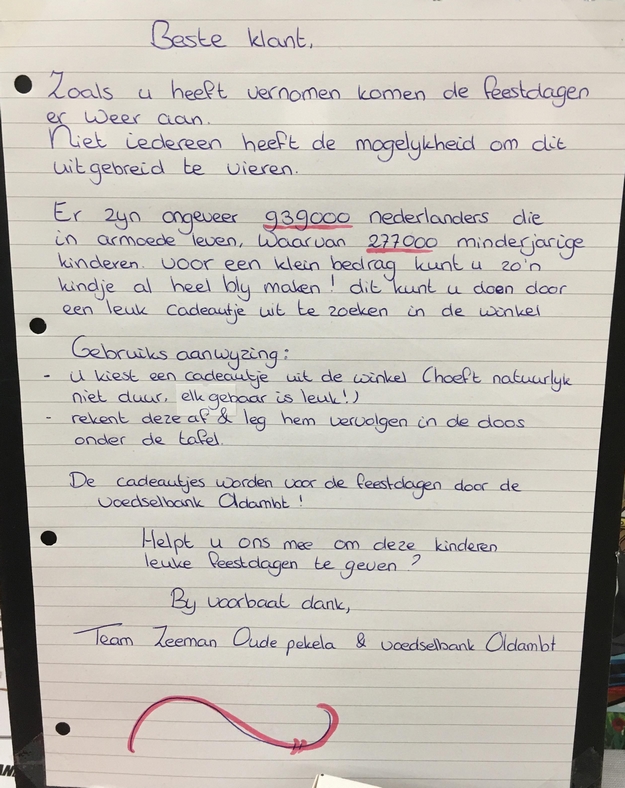 Beste klant,
Zoals u heeft vernomen komen de feestdagen
er weer aan.
Niet iedereen heeft de mogelykheid om dit
uitgebreid te vieren.
Er zyn ongeveer 939000 nederlanders die
in armoede leven, waarvan 277000 minderjarige
kinderen. voor een klein bedrag kunt u zo'n
kindje al heel bly maken! dit kunt u doen door
een leuk cadeautje uit te zoeken in de winkel
Gebruiks aanwyzing:
- u kiest een cadeautje uit de winkel (hoeft natuurlyk
niet duur, elk gebaar is leuk!)
- rekent deze af & leg hem vervolgen in de doos
onder de tafel.
De cadeautjes worden voor de feestdagen door de
voedselbank Oldambt!
Helpt u ons mee om deze kinderen
leuke feestdagen te geven?
By voorbaat dank,
Team Zeeman Oude pekela & voedselbank Oldambt